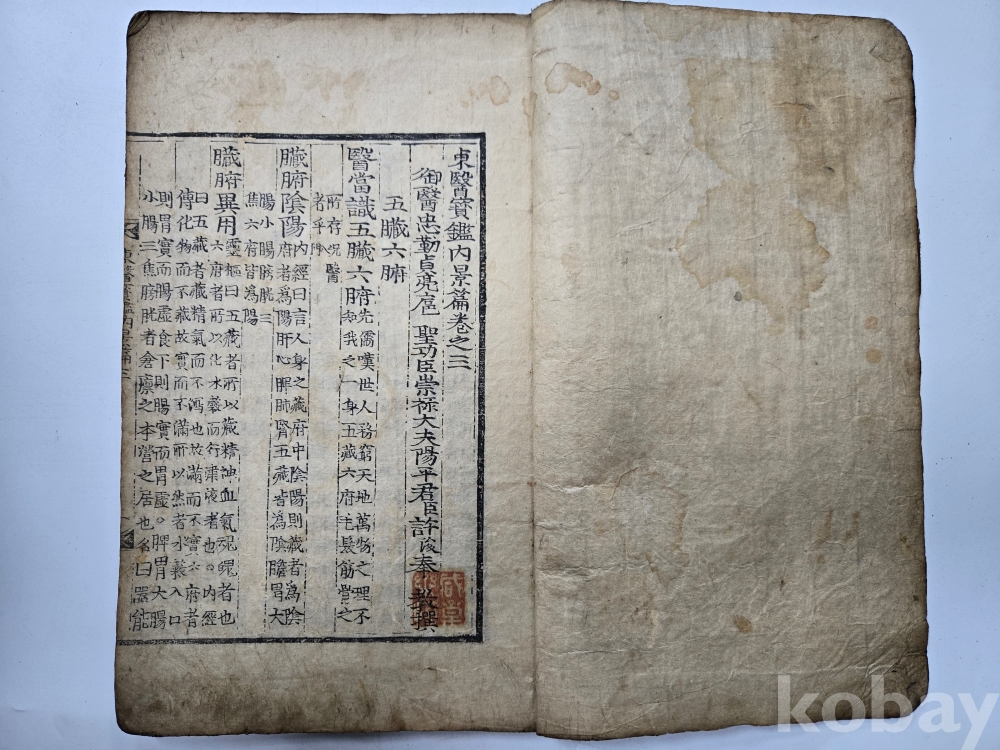 東醫寶鑑內景篇卷之三
御醫忠勤貞亮扈 聖功臣崇祿大夫陽平君臣許浚奉 敎撰
五臟六腑
醫當識五臟六府先儒嘆世人務窮天地萬物之理不
知我之一身五藏六府毛髮筋骨之
所存況醫
者乎入門
臟腑陰陽內經曰言人身之藏府中陰陽則藏者爲陰
府者爲陽肝心脾肺腎五藏皆爲陰膽胃大
腸小腸膀胱三
焦六府皆爲陽
臟腑異用靈樞曰五藏者所以藏精神血氣魂魄者也
六府者所以化水穀而行津液者也○內經
曰五藏者藏精氣而不瀉也故滿而不實六府者
傳化物而不藏故實而不滿所以然者水穀入口
則胃實而腸虛食下則腸實而胃虛○脾胃大腸
小腸三焦膀胱者倉廩之本營之居也名曰器能
東醫寶鑑內景篇三
kobay